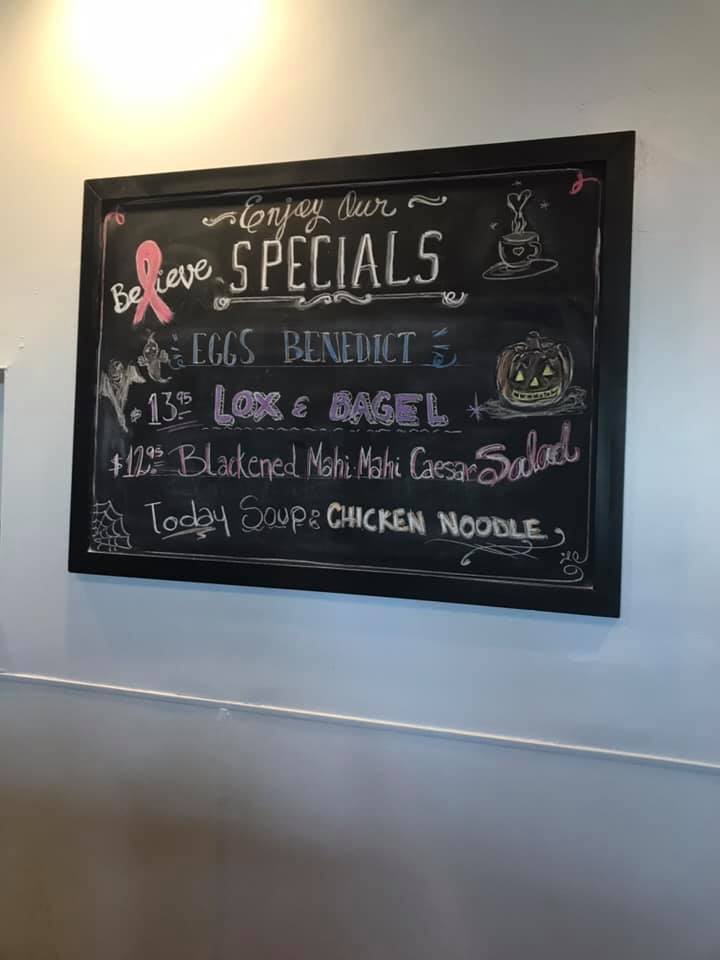 Enjoy Our
Believe SPECIALS
EGGS BENEDICT
$13.95 LOX & BAGEL
$12.95 Blackened Mahi Mahi Caesar Salad
Today Soup: CHICKEN NOODLE